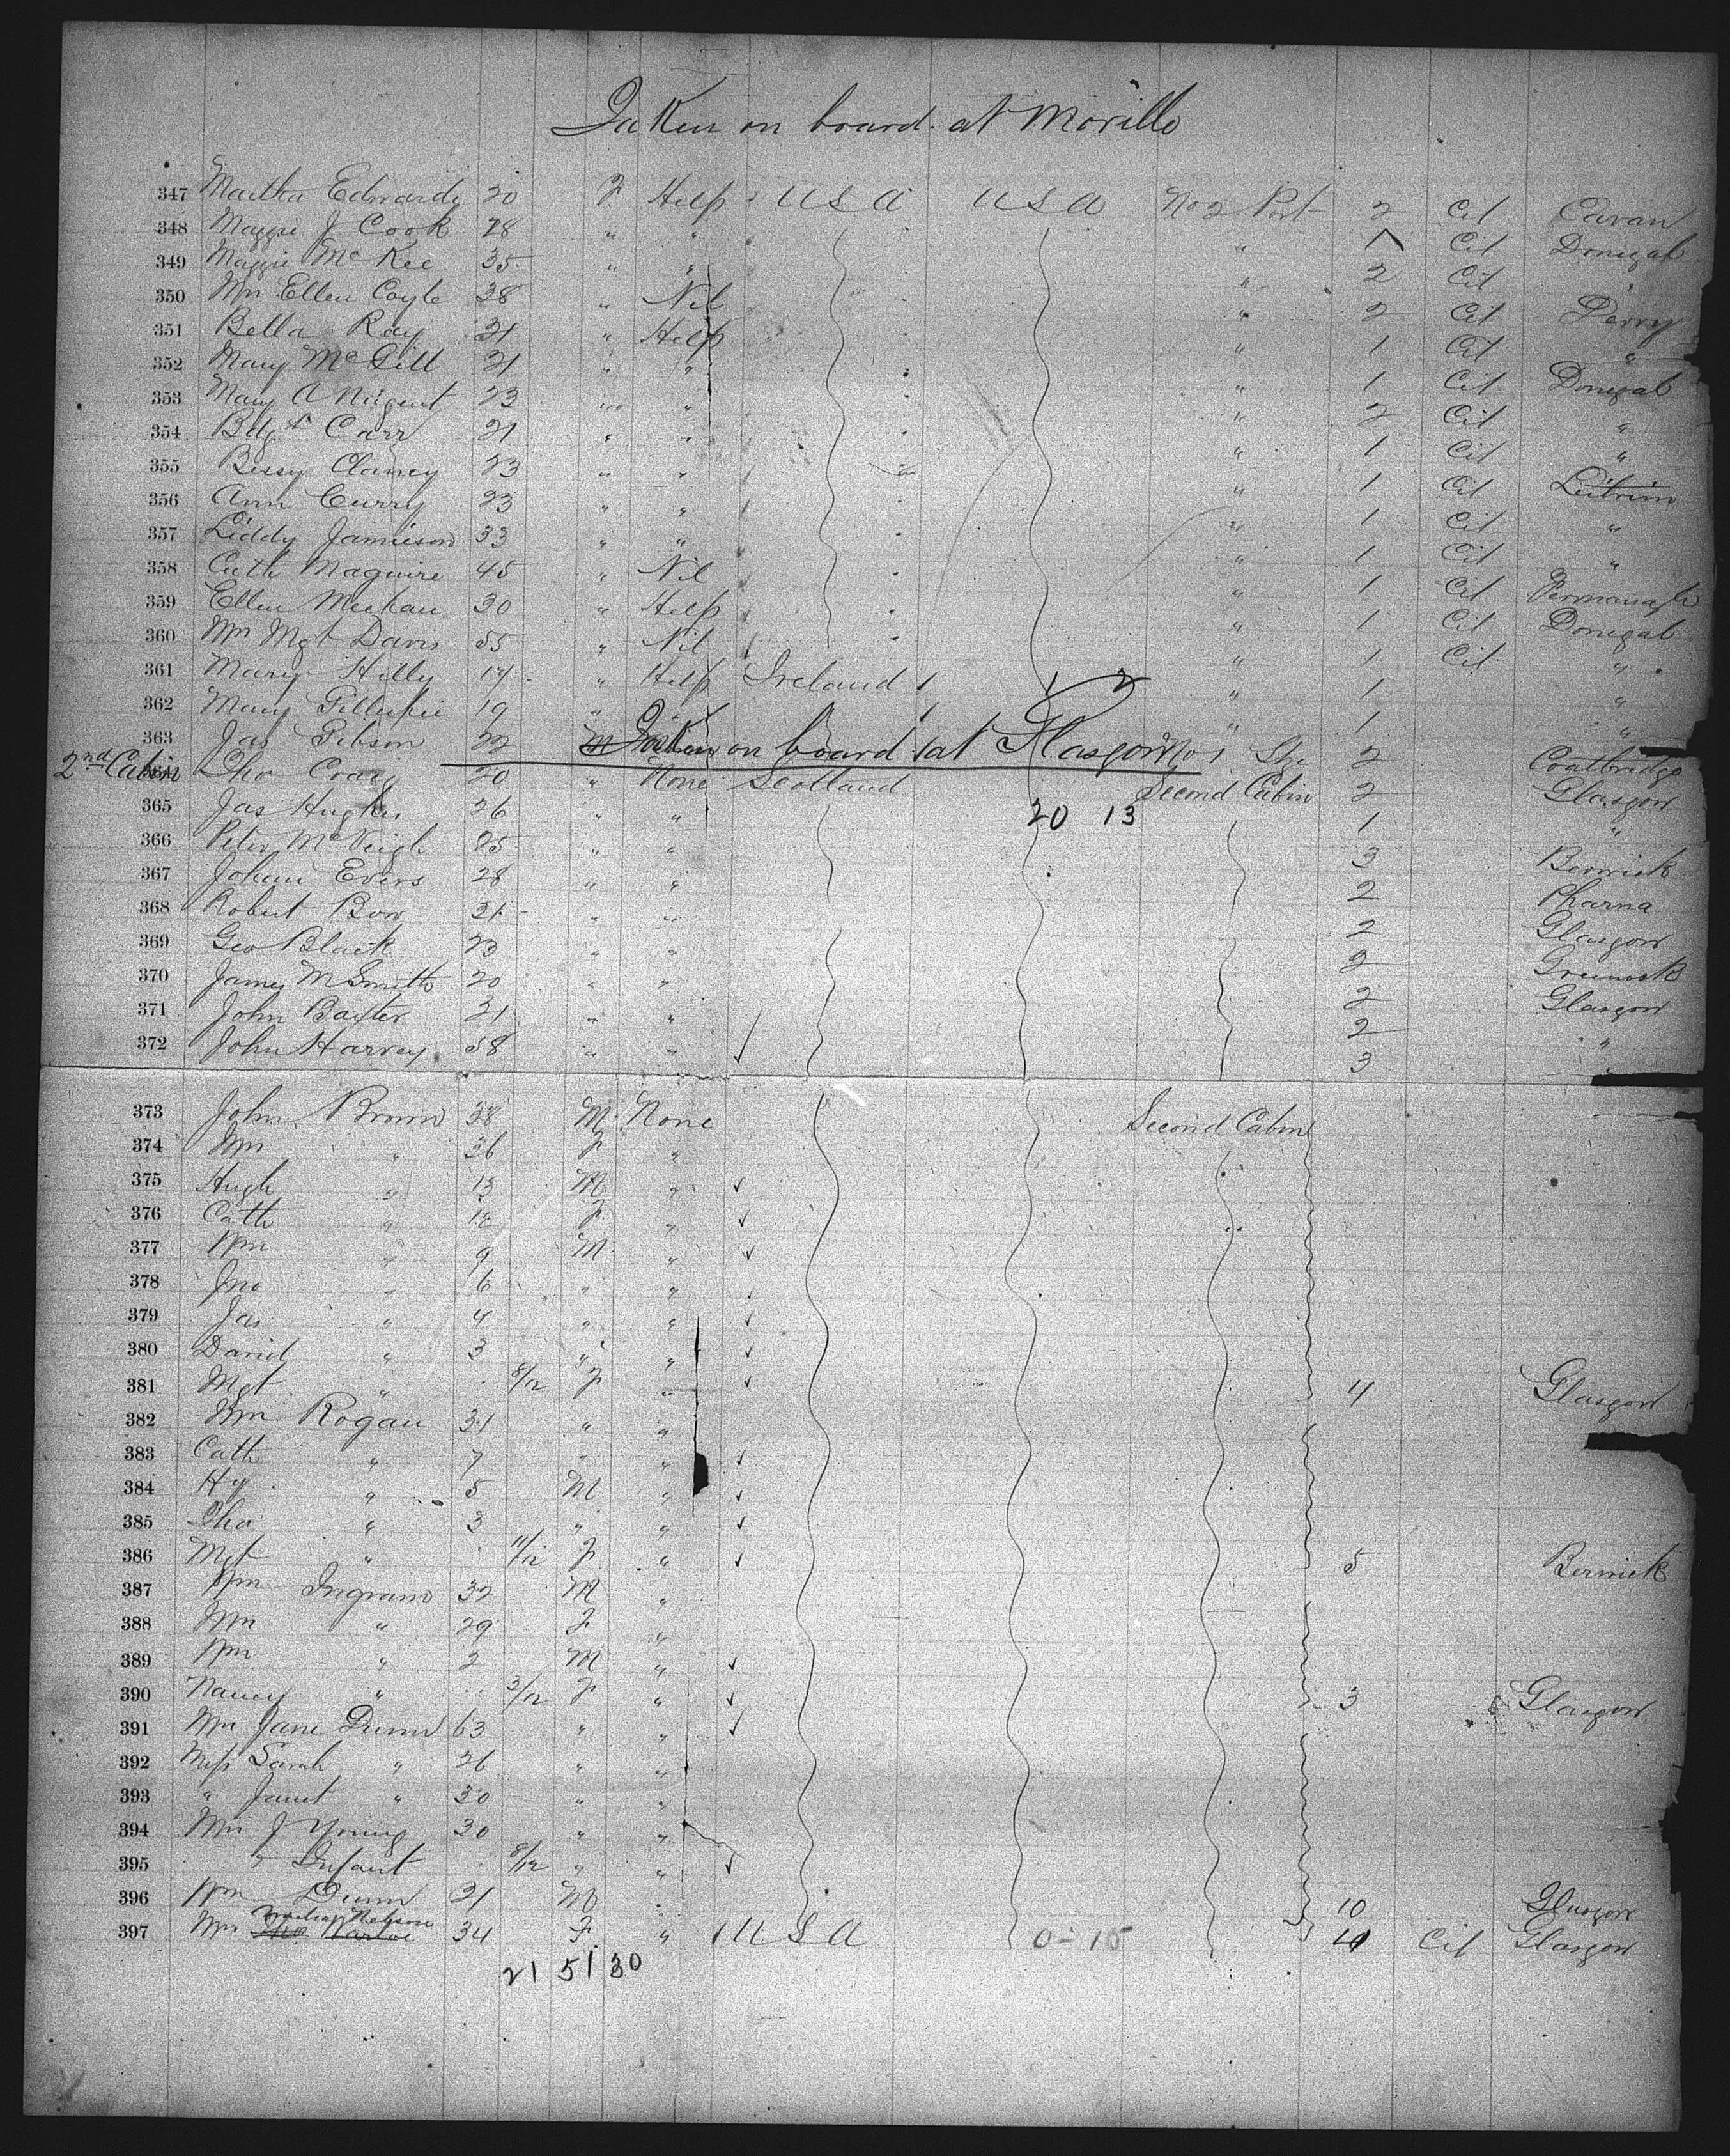 Taken on board at Moville
347 Martha Edwards 20 F Help USA USA No 2 Port 2 Cit Cavan
348 Maggie J Cook 28 " " " 1 Cit Donegal
349 Maggie McKee 35 " " " 2 Cit "
350 Mrs Ellen Coyle 38 " Nil " 2 Cit Derry
351 Bella Ray 21 " Help " 1 Cit "
352 Mary McGill 21 " " " 1 Cit Donegal
353 Mary A Nugent 23 " " " 2 Cit "
354 Bdgt Carr 21 " " " 1 Cit "
355 Bessy Clancy 23 " " " 1 Cit Leitrim
356 Ann Curry 23 " " " 1 Cit "
357 Liddy Jamieson 33 " " " 1 Cit "
358 Cath Maguire 45 " Nil " 1 Cit Fermanagh
359 Ellen Meehan 30 " Help " 1 Cit Donegal
360 Mrs Mgt Davis 55 " Nil " 1 Cit "
361 Mary Hilly 17 " Help Ireland 1 2 " 1 "
362 Mary Gillespie 19 " " " 1 "
Taken on board at Glasgow
363 Jas Gibson 22 M No 1 2 Coatbridge
2nd Cabin Tho Craig 20 " None Scotland Second Cabin 2 Glasgow
20 13
365 Jas Hughes 26 " " 1 "
366 Peter McVeigh 25 " " 3 Berwick
367 Johan Evers 28 " " 2 Pharna
368 Robert Bow 21 " " 2 Glasgow
369 Geo Black 23 " " 2 Greenock
370 James M Smith 20 " " 2 Glasgow
371 John Baxter 21 " " 2 "
372 John Harvey 58 " " 3 "
373 John Brown 38 M None Second Cabin
374 Mrs " 36 F "
375 Hugh " 13 M "
376 Cath " 12 F "
377 Wm " 9 M "
378 Jno " 6 " "
379 Jas " 4 " "
380 Daniel " 3 " "
381 Mgt " 8/12 F " 4 Glasgow
382 Mrs Rogan 31 " "
383 Cath " 7 " "
384 Hy " 5 M "
385 Tho " 3 " "
386 Mgt " 11/12 F " 5 Berwick
387 Wm Ingram 32 M "
388 Mrs " 29 F "
389 Wm " 2 M "
390 Nancy " 3/12 F " 3 Glasgow
391 Mrs Jane Dunn 63 " "
392 Miss Sarah " 26 " "
393 " Janet " 30 " "
394 Mrs J Young 30 " "
395 " Infant 8/12 " "
396 Wm Dunn 21 M " 10 Glasgow
397 Mrs Nelson 34 F " USA 0-15 Cit Glasgow
21 51 30